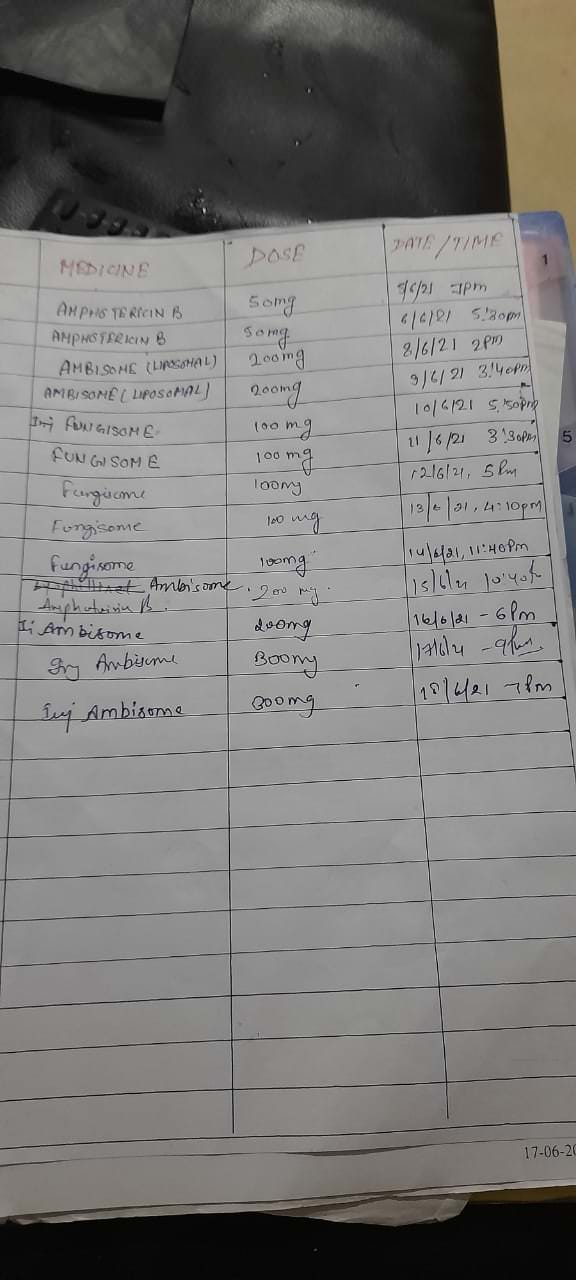 MEDICINE DOSE DATE/TIME
AMPHOTERICIN B 50mg 5/6/21 7pm
AMPHOTERICIN B 50mg 6/6/21 5:30pm
AMBISOME (LIPOSOMAL) 200mg 8/6/21 2pm
AMBISOME (LIPOSOMAL) 200mg 9/6/21 3:40pm
Inj FUNGISOME 100 mg 10/6/21 5:50pm
FUNGISOME 100 mg 11/6/21 3:30pm
Fungisome 100mg 12/6/21, 5pm
Fungisome 100 mg 13/6/21, 4:10pm
Fungisome 100mg 14/6/21, 11:40pm
Ambisome. 200 mg. 15/6/21
Amphotericin B.
Ambisome 200mg 16/6/21 - 6pm
Inj Ambisome 300mg 17/6/21 - 9pm
Inj Ambisome 300mg 18/6/21 7pm
17-06-20
1
5